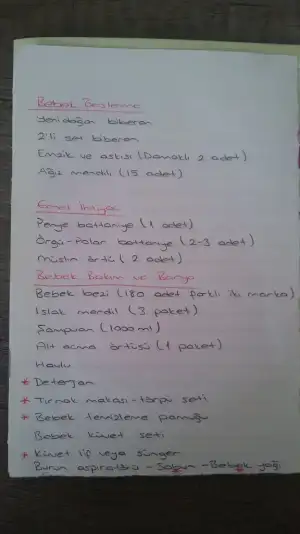 Bebek Beslenme
Yeni doğan biberon
2'li set biberon
Emzik ve askısı (Damaklı 2 adet)
Ağız mendili (15 adet)
Genel İhtiyaç
Penye battaniye (1 adet)
Örgü-Polar battaniye (2-3 adet)
Müslin örtü (2 adet)
Bebek Bakım ve Banyo
Bebek bezi (180 adet farklı iki marka)
Islak mendil (3 paket)
Şampuan (1000 ml)
Alt açma örtüsü (1 paket)
Havlu
* Deterjan
* Tırnak makası-törpü seti
* Bebek temizleme pamuğu
Bebek küvet seti
* Küvet lif veya sünger
Burun aspiratörü - Sabun - Bebek yağı